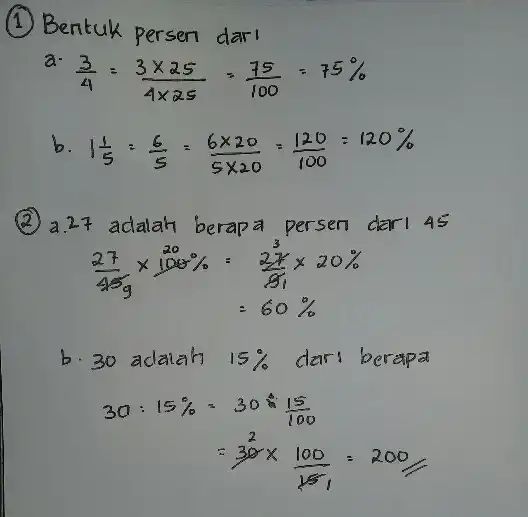 ① Bentuk persen dari
a. 3/4 = 3×25/4×25 = 75/100 = 75%
b. 1 1/5 = 6/5 = 6×20/5×20 = 120/100 = 120%
② a. 27 adalah berapa persen dari 45
27/45 9 × 100 20 % = 27 3/9 1 × 20%
= 60 %
b. 30 adalah 15% dari berapa
30 : 15% = 30 : 15/100
= 30 2 × 100/15 1 = 200